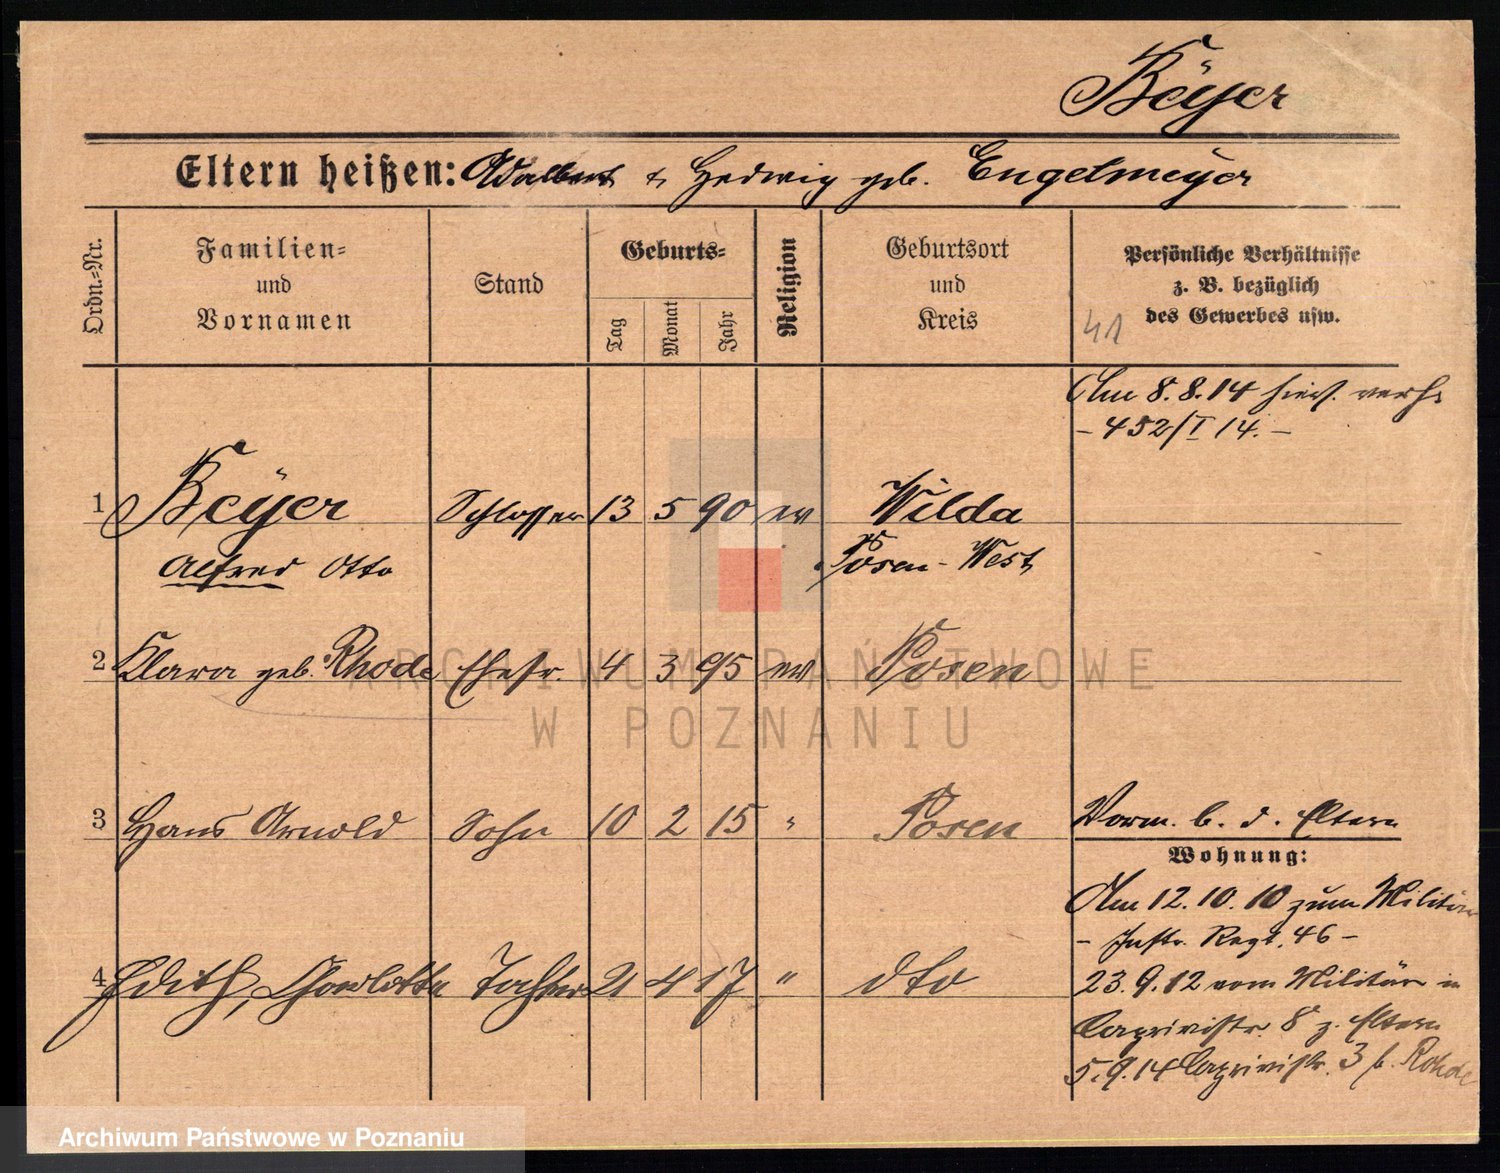 Beÿer
Eltern heißen: Adalbert & Hedwig geb. Engelmeÿer
Ordn.-Nr.
Familien- und Vornamen
Stand
Geburts-
Tag
Monat
Jahr
Religion
Geburtsort und Kreis
Persönliche Verhältnisse
z. B. bezüglich
des Gewerbes usw.
41
Am 8.8.14 hies. verh.
- 452/I 14. -
1 Beÿer Schlosser 13 5 90 ev Wilda
Alfred Otto Posen-West
2 Klara geb. Rhode Ehefr. 4 3 95 ev Posen
3 Hans Arnold Sohn 10 2 15 " Posen
Vorm. b. d. Eltern
Wohnung:
Am 12.10.10 zum Militär
- Inftr. Regt. 46 -
4 Edith, Charlotte Tochter 21 4 17 " dto
23.9.12 vom Militär in
Caprivistr. 8 z. Eltern
5.9.14 Caprivistr. 3 b. Rohde
ARCHIWUM PAŃSTWOWE
W POZNANIU
Archiwum Państwowe w Poznaniu